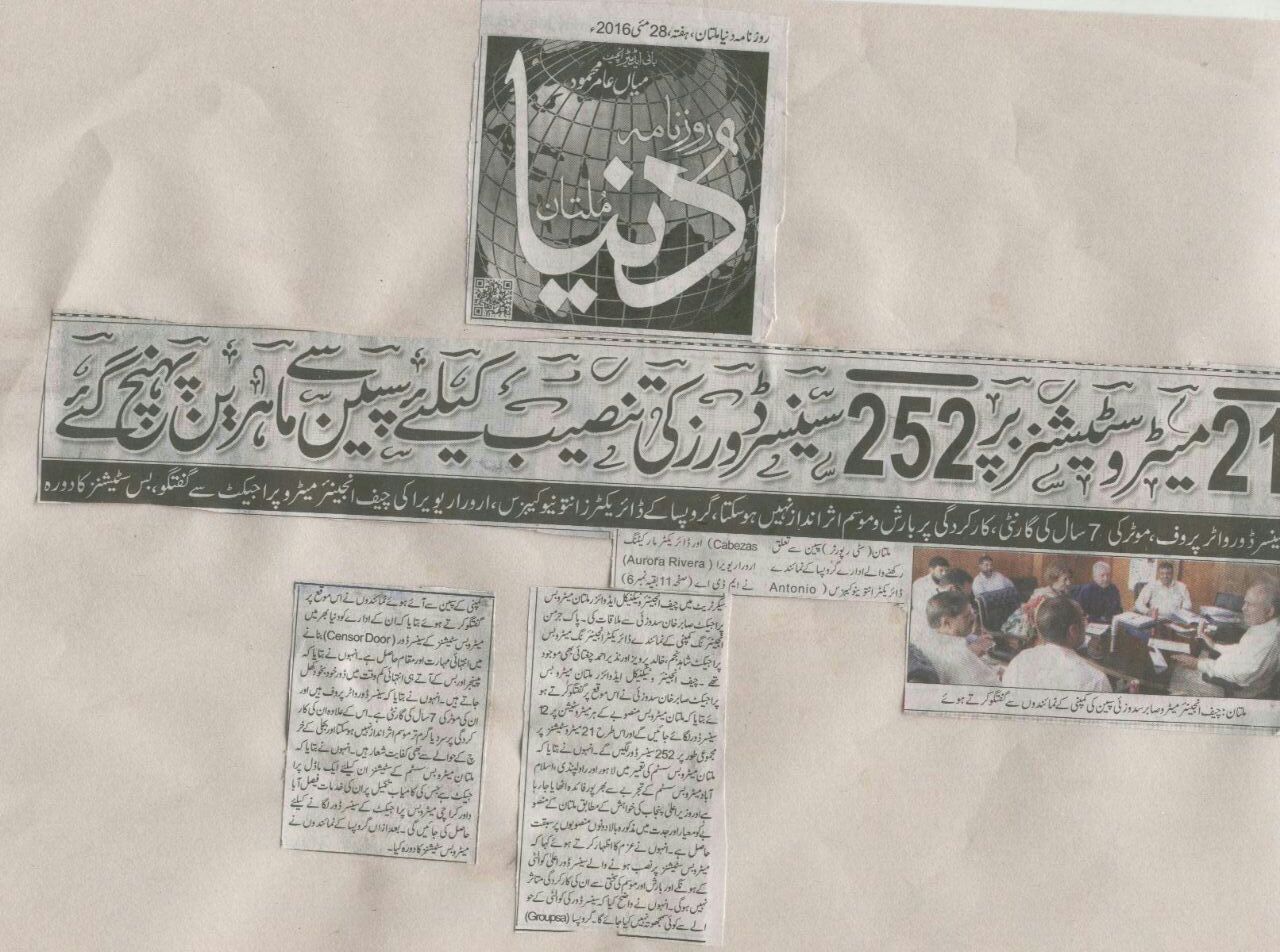 روزنامہ دنیا ملتان، ہفتہ، 28 مئی 2016ء
بانی ایڈیٹر انچیف
میاں عامر محمود
روزنامہ
دُنیا
ملتان
21 میٹرو سٹیشنز پر 252 سینسر ڈورز کی تنصیب کیلئے سپین سے ماہرین پہنچ گئے
سینسر ڈور واٹر پروف، موٹر کی 7 سال کی گارنٹی، کارکردگی پر بارش و موسم اثر انداز نہیں ہو سکتا، گروپسا کے ڈائریکٹرز انتونیو کبیزس، ارورا ریویرا کی چیف انجینئر میٹرو پراجیکٹ سے گفتگو، بس سٹیشنز کا دورہ
ملتان (سٹی رپورٹر) سپین سے تعلق
رکھنے والے ادارے گروپسا کے نمائندے
ڈائریکٹر انتونیو کبیزس (Antonio
Cabezas) اور ڈائریکٹر مارکیٹنگ
ارورا ریویرا (Aurora Rivera)
نے ایم ڈی اے (صفحہ 11 بقیہ نمبر 6)
سیکرٹریٹ میں چیف انجینئر و ٹیکنیکل ایڈوائزر ملتان میٹرو بس
پراجیکٹ صابر خان سدوزئی سے ملاقات کی۔ پاک جرمن
انجینئرنگ کمپنی کے نمائندے ڈائریکٹر انجینئرنگ میٹرو بس
پراجیکٹ شاہد نجم، خالد پرویز اور نذیر احمد چغتائی بھی موجود
تھے۔ چیف انجینئر و ٹیکنیکل ایڈوائزر ملتان میٹرو بس
پراجیکٹ صابر خان سدوزئی نے اس موقع پر گفتگو کرتے ہو
ئے بتایا کہ ملتان میٹرو بس منصوبے کے ہر میٹرو سٹیشن پر 12
سینسر ڈور لگائے جائیں گے اور اس طرح 21 میٹرو سٹیشنز پر
مجموعی طور پر 252 سینسر ڈور لگیں گے۔ انہوں نے بتایا کہ
ملتان میٹرو بس سسٹم کی تعمیر میں لاہور اور راولپنڈی، اسلام
آباد میٹرو بس سسٹم کے تجربے سے بھرپور فائدہ اٹھایا جا رہا
ہے اور وزیر اعلیٰ پنجاب کی خواہش کے مطابق ملتان کے منصو
بے کو معیار اور جدت میں مذکورہ بالا دونوں منصوبوں پر سبقت
حاصل ہے۔ انہوں نے عزم کا اظہار کرتے ہوئے کہا کہ
میٹرو بس سٹیشنز پر نصب ہونے والے سینسر ڈور اعلیٰ کوالٹی
کے ہونگے اور بارش اور موسم کی سختی سے ان کی کارکردگی متاثر
نہیں ہوگی۔ انہوں نے واضح کیا کہ سینسر ڈور کی کوالٹی کے حو
الے سے کوئی سمجھوتہ نہیں کیا جائے گا۔ گروپسا (Groupsa)
کمپنی کے سپین سے آئے ہوئے نمائندوں نے اس موقع پر
گفتگو کرتے ہوئے بتایا کہ ان کے ادارے کو دنیا بھر میں
میٹرو بس سٹیشنز کے سینسر ڈور (Censor Door) بنانے
میں انتہائی مہارت اور مقام حاصل ہے۔ انہوں نے بتایا کہ
پسینجر اور بس کے آتے ہی انتہائی کم وقت میں ڈور خود بخود کھل
جاتے ہیں۔ انہوں نے بتایا کہ سینسر ڈور واٹر پروف ہیں اور
ان کی موٹر کی 7 سال کی گارنٹی ہے۔ اس کے علاوہ ان کی کار
کردگی پر سرد یا گرم تر موسم اثر انداز نہیں ہو سکتا اور بجلی کے خر
چ کے حوالے سے بھی کفایت شعار ہیں۔ انہوں نے بتایا کہ
ملتان میٹرو بس سسٹم کے سٹیشنز ان کیلئے ایک ماڈل پرا
جیکٹ ہے جس کی کامیاب تکمیل پر ان کی خدمات فیصل آبا
د اور کراچی میٹرو بس پراجیکٹ کے سینسر ڈور لگانے کیلئے
حاصل کی جائیں گی۔ بعد ازاں گروپسا کے نمائندوں نے
میٹرو بس سٹیشنز کا دورہ کیا۔
ملتان: چیف انجینئر میٹرو صابر سدوزئی سپین کی کمپنی کے نمائندوں سے گفتگو کرتے ہوئے